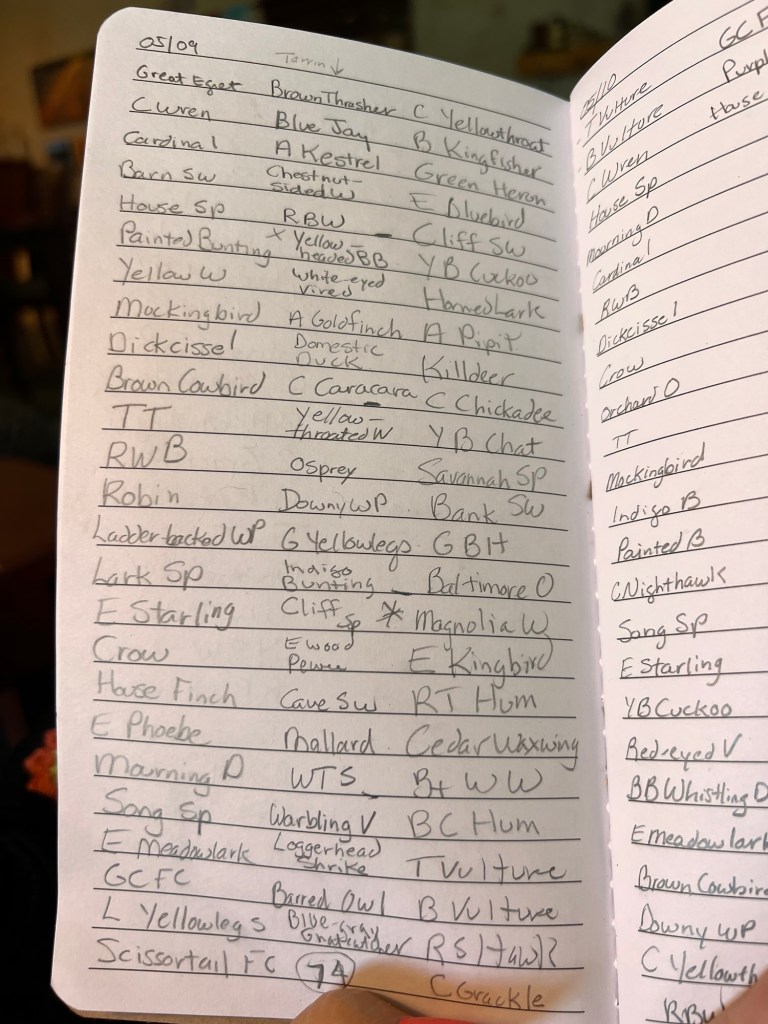 05/09
Tarrin ↓
Great Eget
C Wren
Cardinal
Barn Sw
House Sp
Painted Bunting
Yellow W
Mockingbird
Dickcissel
Brown Cowbird
TT
RWB
Robin
Ladder-backed WP
Lark Sp
E Starling
Crow
House Finch
E Phoebe
Mourning D
Song Sp
E Meadowlark
GCFC
L Yellowlegs
Scissortail FC
Brown Thrasher
Blue Jay
A Kestrel
Chestnut-
sided W
RBW
x Yellow-
headed BB
White-eyed
Vireo
A Goldfinch
Domestic
Duck
C Caracara
Yellow-
throated W
Osprey
Downy WP
G Yellowlegs
Indigo
Bunting
Cliff
Sp
E Wood
Pewee
Cave Sw
Mallard
WTS
Warbling V
Loggerhead
Shrike
Barred Owl
Blue-Gray
Gnatcatcher
74
C Yellowthroat
B Kingfisher
Green Heron
E Bluebird
- Cliff Sw
YB Cuckoo
Horned Lark
A Pipit
Killdeer
C Chickadee
YB Chat
Savannah Sp
Bank Sw
GBH
- Baltimore O
* Magnolia W
E Kingbird
RT Hum
Cedar Waxwing
B+WW
BC Hum
T Vulture
B Vulture
RS Hawk
C Grackle
05/10
T Vulture
B Vulture
C Wren
House Sp
Mourning D
Cardinal
RWB
Dickcissel
Crow
Orchard O
TT
Mockingbird
Indigo B
Painted B
C Nighthawk
Song Sp
E Starling
YB Cuckoo
Red-eyed V
BB Whistling D
E meadowlark
Brown Cowbird
Downy WP
C Yellowth
RBW
GCF
Purpl
House